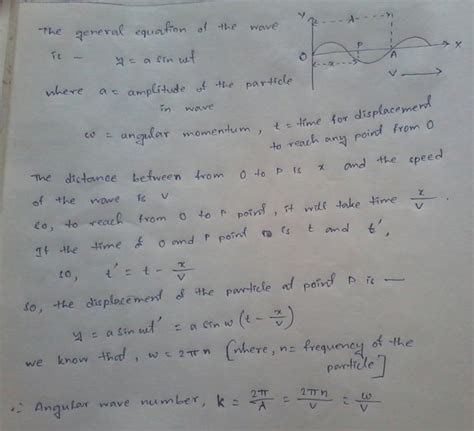 The general equation of the wave
is - y = a sin ωt
where a = amplitude of the particle
in wave
ω = angular momentum, t = time for displacement
to reach any point from O
The distance between from O to P is x and the speed
of the wave is V
so, to reach from O to P point, it will take time x/V.
If the time of O and P point is t and t',
so, t' = t - x/V
so, the displacement of the particle at point P is —
y = a sin ωt' = a sin ω (t - x/V)
we know that, ω = 2πn [where, n = frequency of the
particle]
∴ Angular wave number, k = 2π/λ = 2πn/V = ω/V
Y
λ
P
A
X
O
x
V